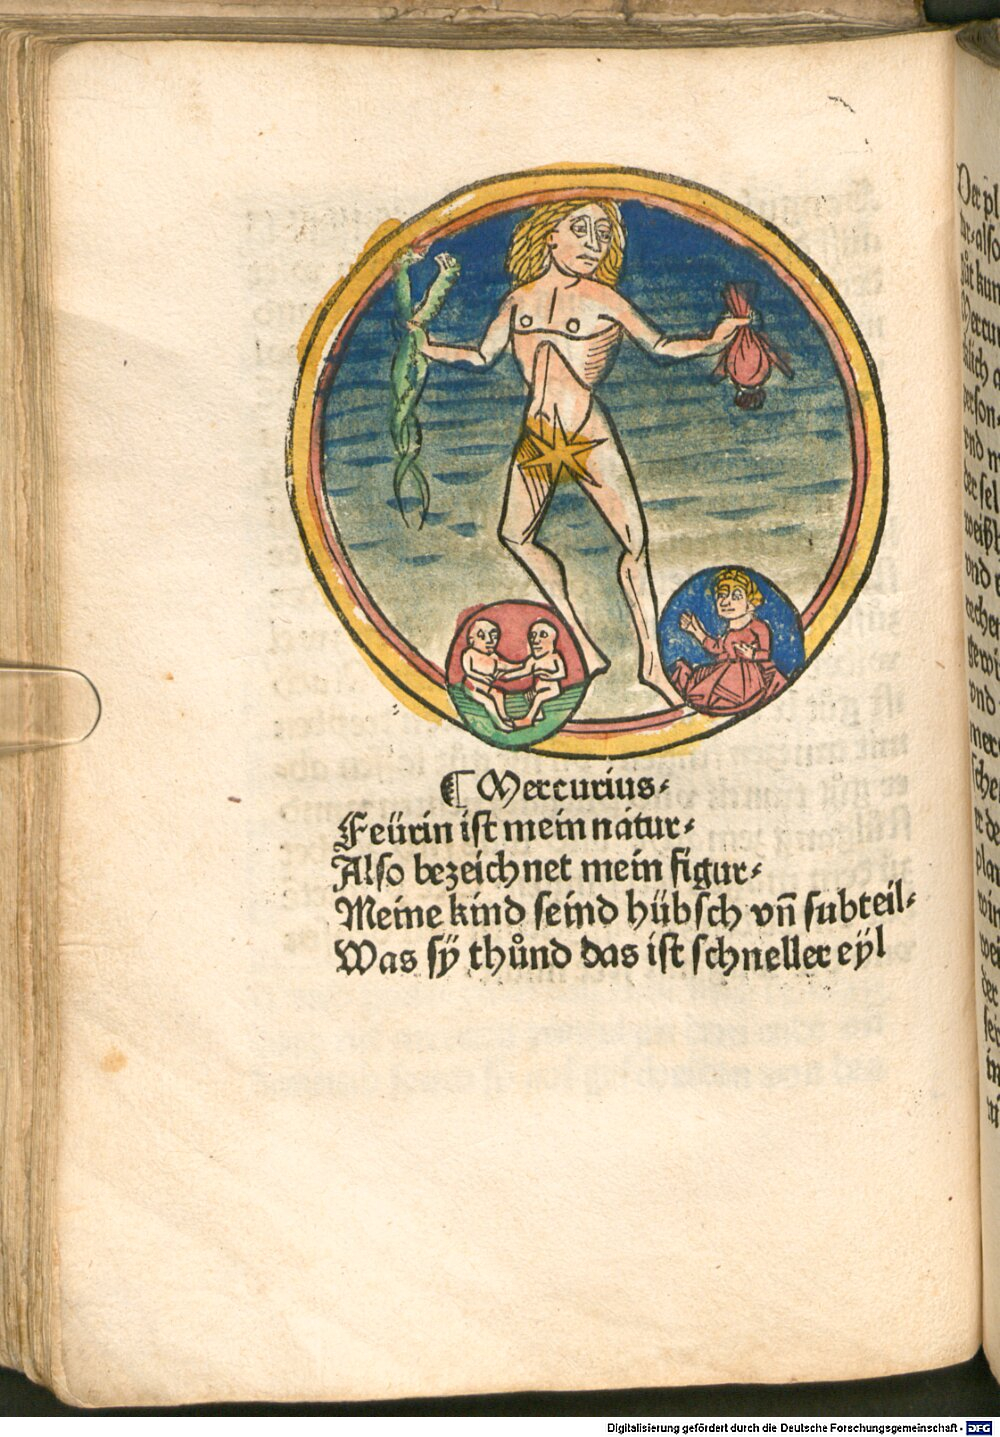 ⸿ Mercurius⸗
Feürin ist mein natur⸗
Also bezeichnet mein figur⸗
Meine kind seind hübsch vn̄ subteil⸗
Was sÿ thůnd das ist schneller eÿl
Digitalisierung gefördert durch die Deutsche Forschungsgemeinschaft - DFG